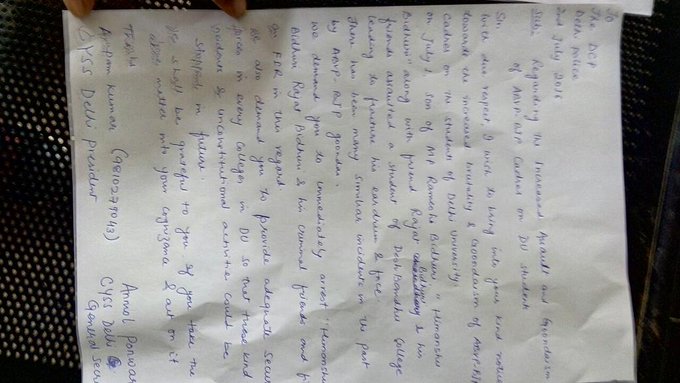 To
The DCP
Delhi Police
2nd July 2016
Sub: Regarding the Increased Assault and Goondaism
of ABVP-BJP Cadres on DU student
Sir
With due respect I wish to bring into your kind notice
towards the increased brutality & Goondaism of ABVP-BJP
Cadres on the students of Delhi University.
on July 1, son of MP Ramesh Bidhuri "Himanshu
Bidhuri" along with friend Rajat Bidhuri & his
friends assaulted a student of Deshbandhu College
leading to fracture his eardrum & face.
There has been many similar incidents in the past
by ABVP-BJP goondas.
We demand you to immediately arrest "Himanshu
Bidhuri Rajat Bidhuri & his criminal friends and
an FIR in this regard
We also demand you to provide adequate
force in every colleges in DU so that these kind
& unconstitutional activities could be
stopped in future.
We shall be grateful to you if you take the
above matter into your cognizance & act on it
Thanks
Anupam Kumar (9810279043) Anmol Panwar
CYSS Delhi President CYSS Delhi
General